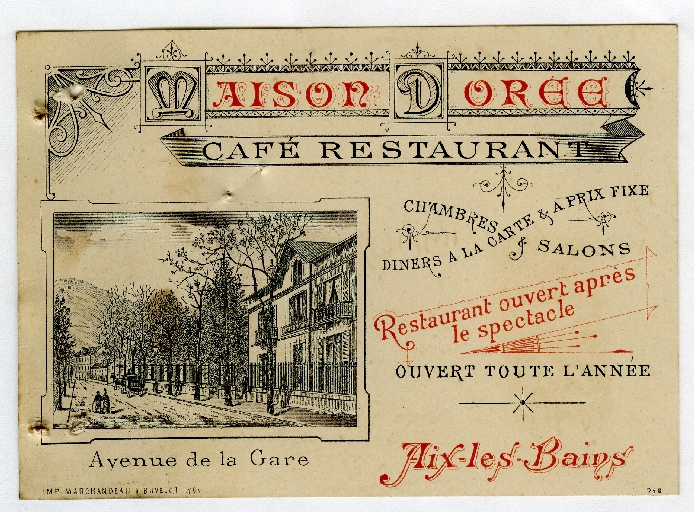 MAISON DORÉE
CAFÉ RESTAURANT
CHAMBRES
DINERS A LA CARTE & A PRIX FIXE
& SALONS
Restaurant ouvert après
le spectacle
OUVERT TOUTE L'ANNÉE
Aix-les-Bains
Avenue de la Gare
IMP. MARCHANDEAU &